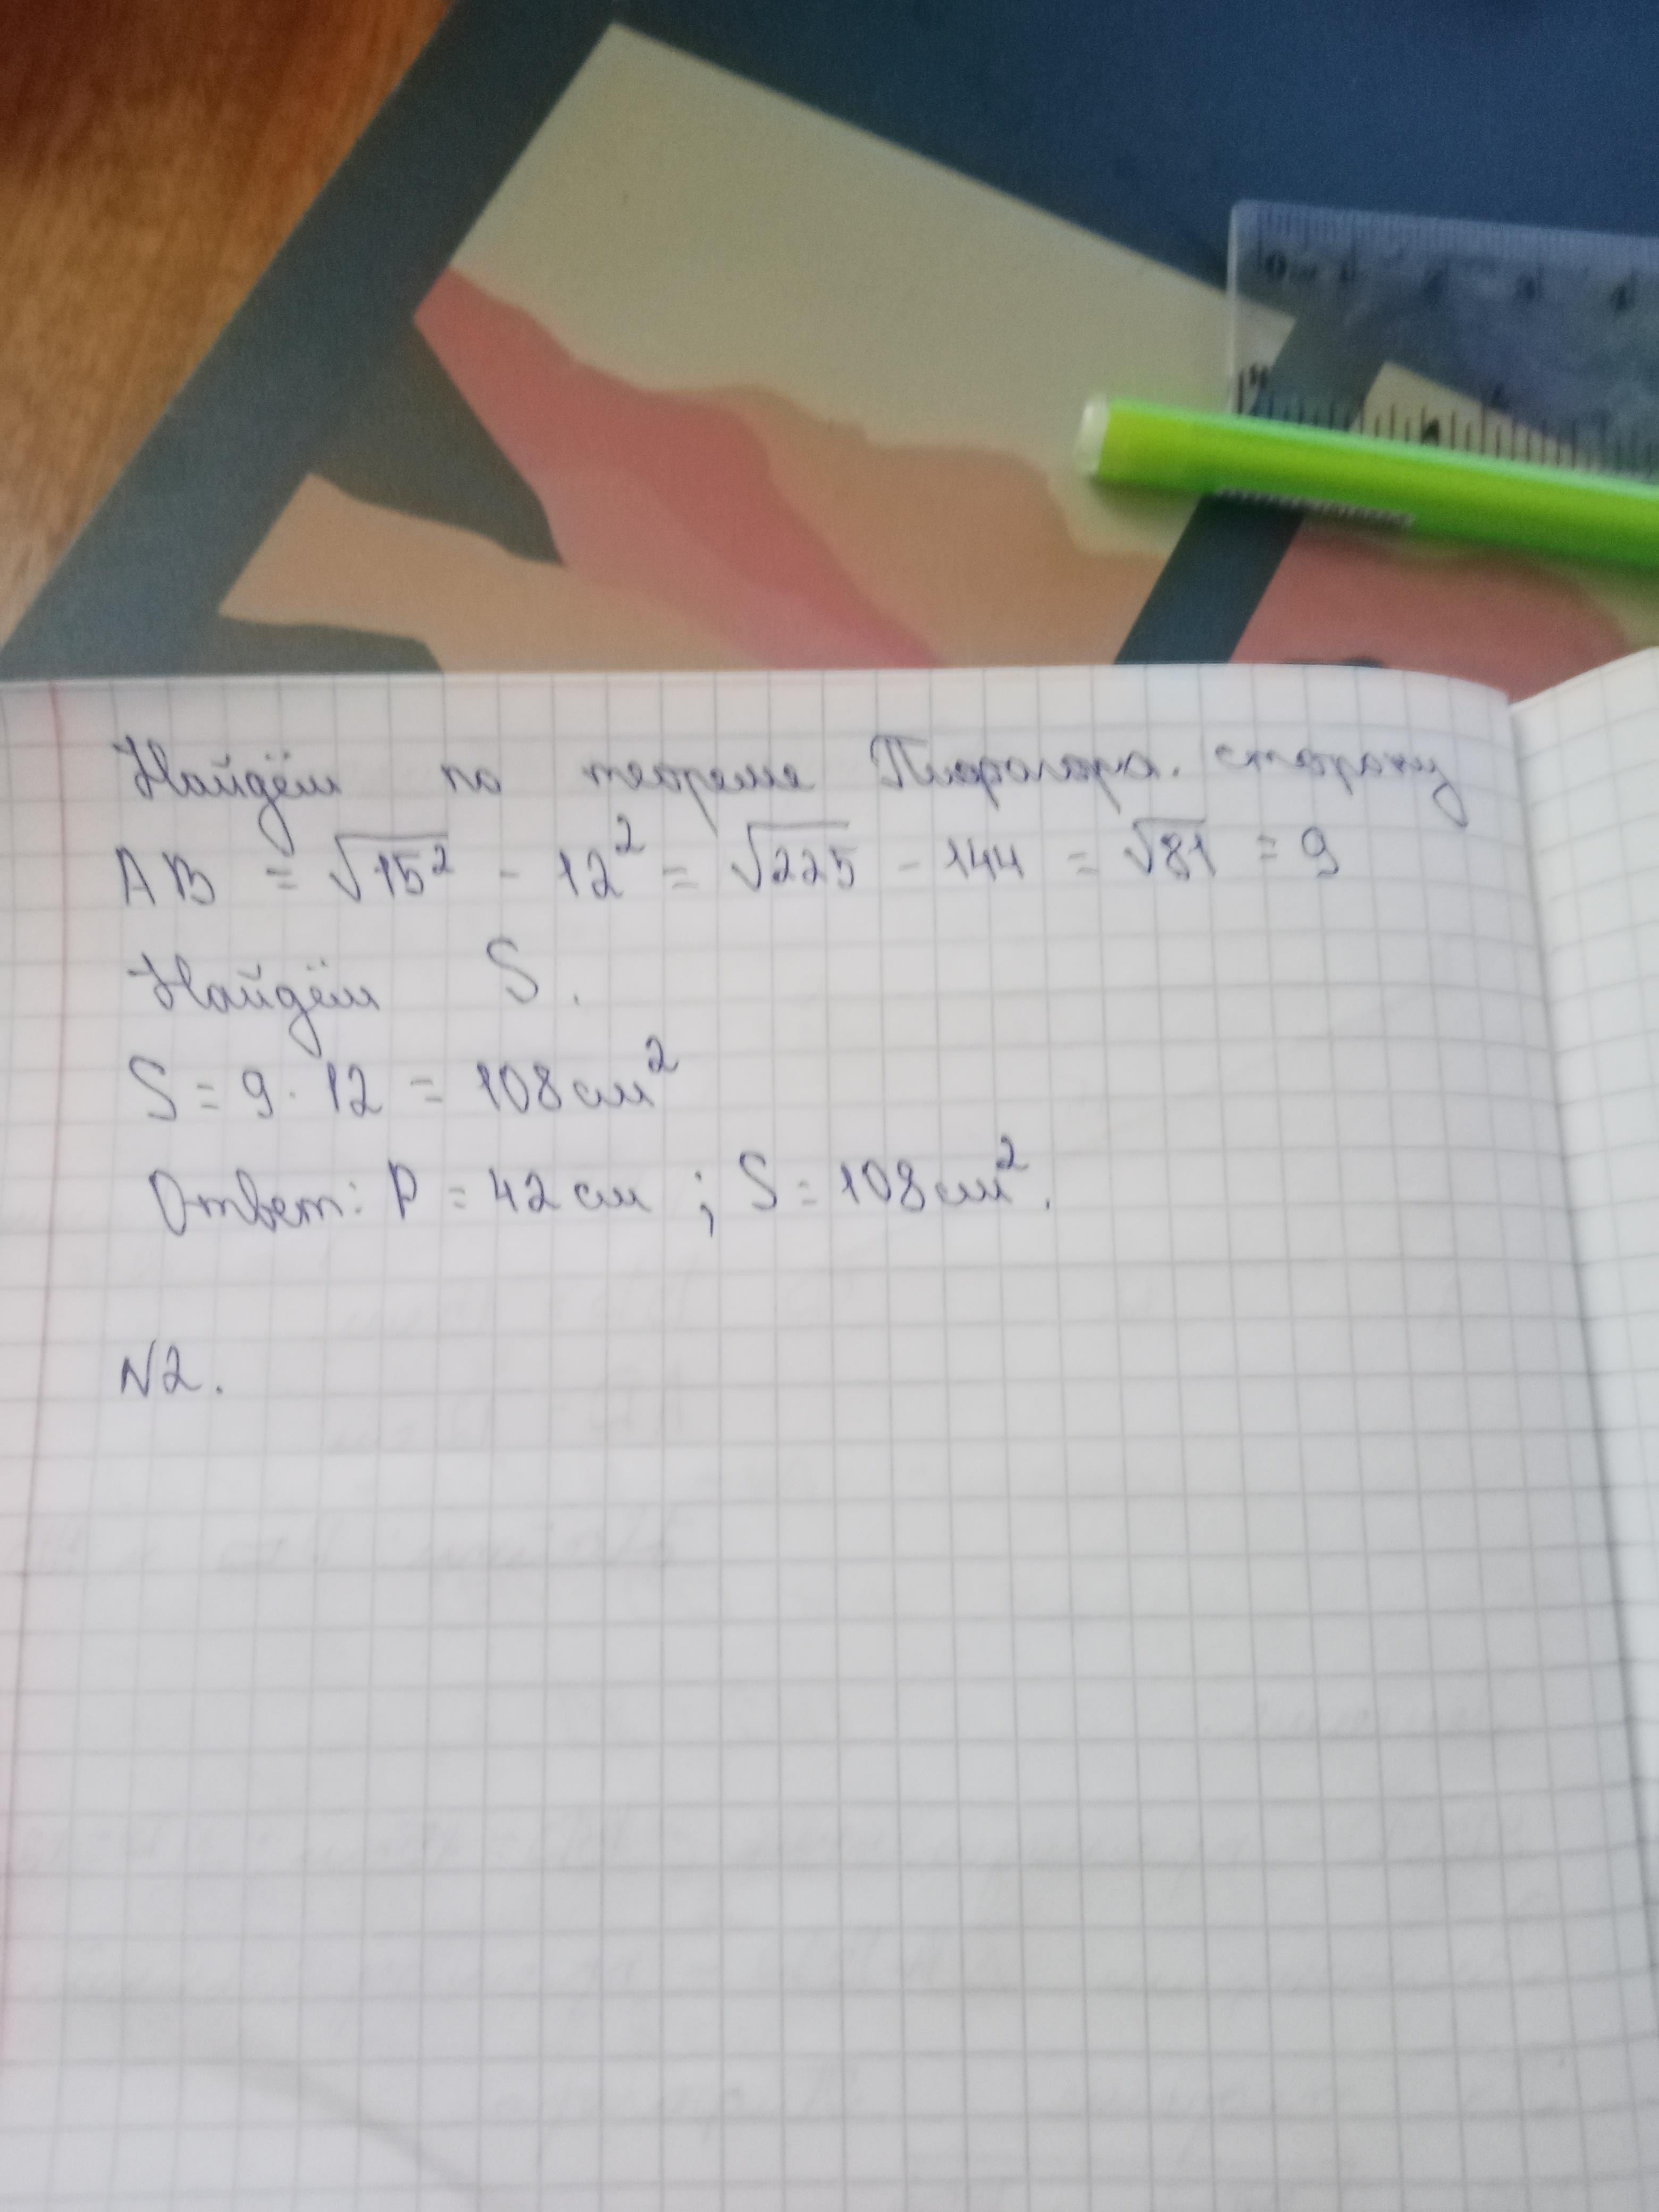 Найдём по теореме Пифагора. сторону
AB = √15² - 12² = √225 - 144 = √81 = 9
Найдём S.
S = 9 · 12 = 108 см²
Ответ: P = 42 см ; S = 108 см².
N2.